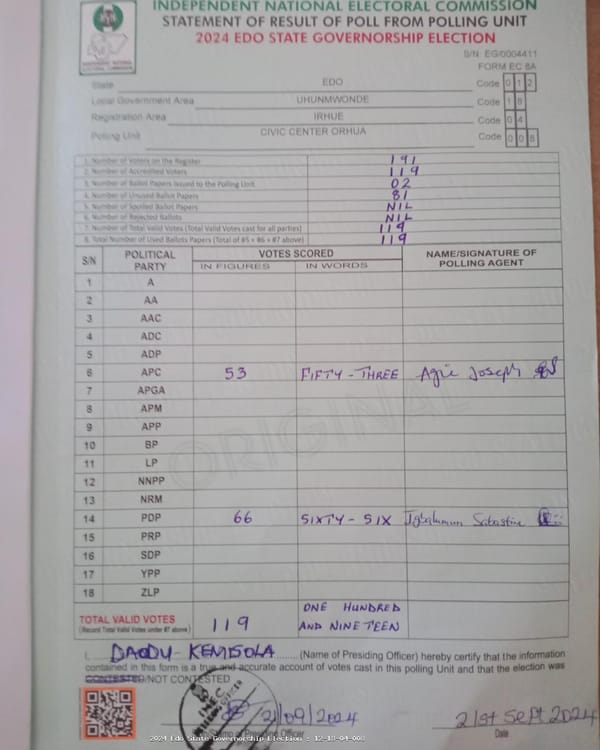 INDEPENDENT NATIONAL ELECTORAL COMMISSION
STATEMENT OF RESULT OF POLL FROM POLLING UNIT
2024 EDO STATE GOVERNORSHIP ELECTION
S/N: EG/0004411
FORM EC 8A
State EDO Code 0 1 2
Local Government Area UHUNMWONDE Code 1 8
Registration Area IRHUE Code 0 4
Polling Unit CIVIC CENTER ORHUA Code 0 0 8
1. Number of Voters on the Register 191
2. Number of Accredited Voters 119
3. Number of Ballot Papers Issued to the Polling Unit 02
4. Number of Unused Ballot Papers 81
5. Number of Spoiled Ballot Papers NIL
6. Number of Rejected Ballots NIL
7. Number of Total Valid Votes (Total Valid Votes cast for all parties) 119
8. Total Number of Used Ballots Papers (Total of #5 + #6 + #7 above) 119
S/N POLITICAL PARTY VOTES SCORED NAME/SIGNATURE OF POLLING AGENT
IN FIGURES IN WORDS
1 A
2 AA
3 AAC
4 ADC
5 ADP
6 APC 53 FIFTY-THREE Agie Joseph
7 APGA
8 APM
9 APP
10 BP
11 LP
12 NNPP
13 NRM
14 PDP 66 SIXTY-SIX
15 PRP
16 SDP
17 YPP
18 ZLP
TOTAL VALID VOTES 119 ONE HUNDRED AND NINETEEN
(Record Total Valid Votes under #7 above)
I, DAODU KEMISOLA (Name of Presiding Officer) hereby certify that the information
contained in this form is a true and accurate account of votes cast in this polling Unit and that the election was
CONTESTED/NOT CONTESTED
INEC
21/09/2024 21st Sept 2024
Date
2024 Edo State Governorship Election : 12-18-04-008